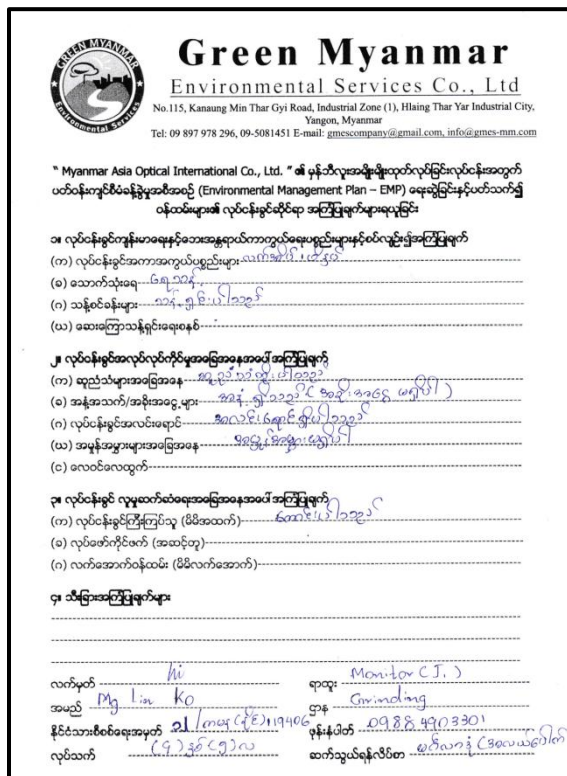 GREEN MYANMAR
Environmental Services
Green Myanmar
Environmental Services Co., Ltd
No.115, Kanaung Min Thar Gyi Road, Industrial Zone (1), Hlaing Thar Yar Industrial City,
Yangon, Myanmar
Tel: 09 897 978 296, 09-5081451 E-mail: gmescompany@gmail.com, info@gmes-mm.com
" Myanmar Asia Optical International Co., Ltd. " ၏ မှန်ဘီလူးအမျိုးမျိုးထုတ်လုပ်ခြင်းလုပ်ငန်းအတွက်
ပတ်ဝန်းကျင်စီမံခန့်ခွဲမှုအစီအစဉ် (Environmental Management Plan – EMP) ရေးဆွဲခြင်းနှင့်ပတ်သက်၍
ဝန်ထမ်းများ၏ လုပ်ငန်းခွင်ဆိုင်ရာ အကြံပြုချက်များရယူခြင်း
၁။ လုပ်ငန်းခွင်ကျန်းမာရေးနှင့်ဘေးအန္တရာယ်ကာကွယ်ရေးပစ္စည်းများနှင့်စပ်လျဉ်း၍အကြံပြုချက်
(က) လုပ်ငန်းခွင်အကာအကွယ်ပစ္စည်းများ လက်အိတ်
(ခ) သောက်သုံးရေ ရေသန့်
(ဂ) သန့်စင်ခန်းများ သန့်ရှင်းပါသည်
(ဃ) ဆေးကြောသန့်ရှင်းရေးစနစ်
၂။ လုပ်ငန်းခွင်အလုပ်လုပ်ကိုင်မှုအခြေအနေအပေါ် အကြံပြုချက်
(က) ဆူညံသံများအခြေအနေ ဆူညံသံတိုးပါသည်
(ခ) အနံ့အသက်/အခိုးအငွေ့များ အနံ့ရှိသည် (အခိုးအငွေ့ မရှိပါ)
(ဂ) လုပ်ငန်းခွင်အလင်းရောင် အလင်းရောင်ရှိပါသည်
(ဃ) အမှုန်အမွှားများအခြေအနေ အမှုန်အမွှားမရှိပါ
(င) လေဝင်လေထွက်
၃။ လုပ်ငန်းခွင် လူမှုဆက်ဆံရေးအခြေအနေအပေါ် အကြံပြုချက်
(က) လုပ်ငန်းခွင်ကြီးကြပ်သူ (မိမိအထက်) ကောင်းပါသည်
(ခ) လုပ်ဖော်ကိုင်ဖက် (အဆင့်တူ)
(ဂ) လက်အောက်ဝန်ထမ်း (မိမိလက်အောက်)
၄။ သီးခြားအကြံပြုချက်များ
လက်မှတ် ရာထူး Monitor (J.)
အမည် Mg Lin Ko ဌာန Grinding
နိုင်ငံသားစိစစ်ရေးအမှတ် ဖုန်းနံပါတ် 09884903301
လုပ်သက် (၄) နှစ် (၅) လ ဆက်သွယ်ရန်လိပ်စာ